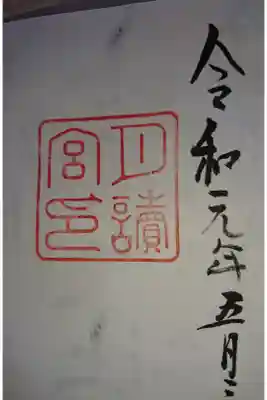 令和元年五月
月讀
宮印